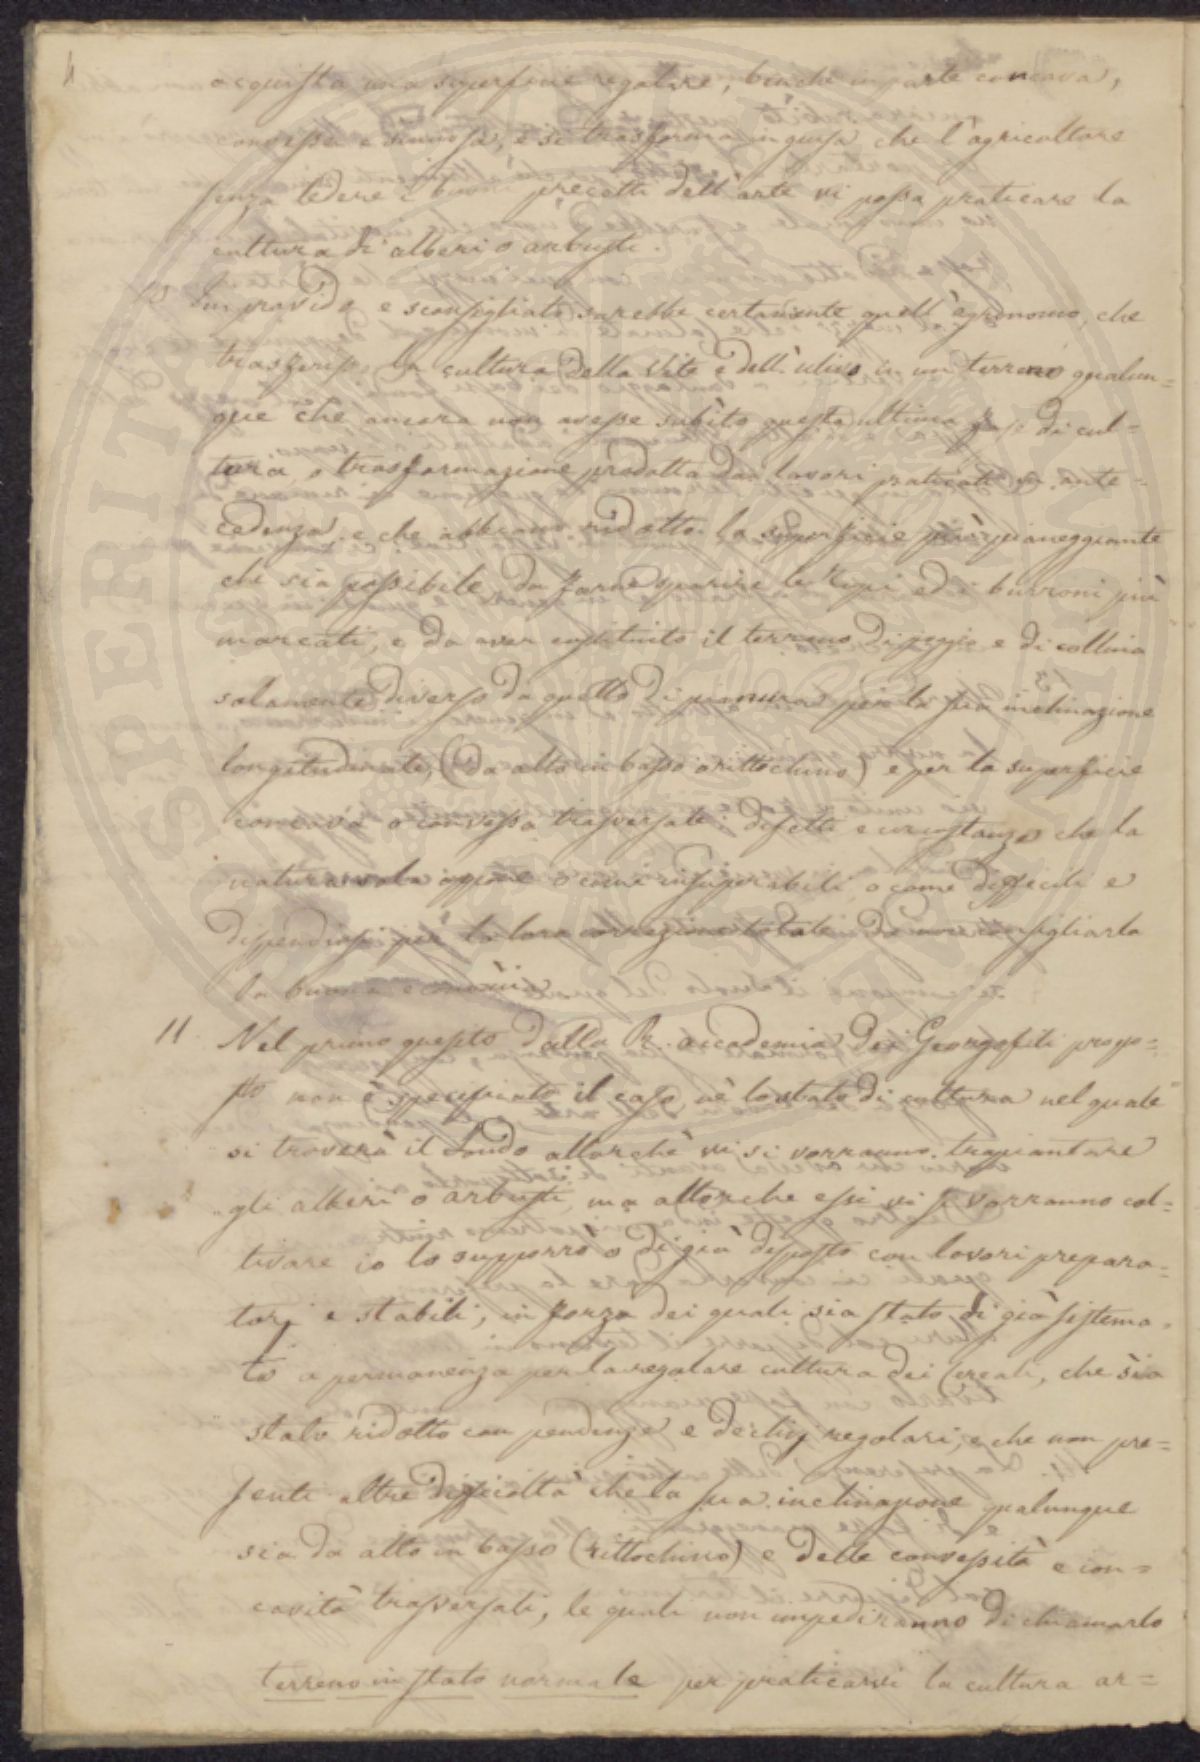 4
acquista una superficie regolare, benchè in parte concava,
convessa e sinuosa, e si trasforma in guisa che l'agricoltore
senza ledere i buoni precetti dell'arte vi possa praticare la
cultura di alberi o arbusti.
10 Improvido e sconsigliato sarebbe certamente quell'agronomo, che
trasferisse la cultura della vite e dell'ulivo in un terreno qualun=
que che ancora non avesse subìto questa ultima fase di cul=
tura, o trasformazione prodotta dai lavori praticati in ante=
cedenza, e che abbiano ridotto la superficie più pianeggiante
che sia possibile da farne sparire le ripi ed i burroni più
marcati, e da aver costituito il terreno di poggio e di collina
solamente diverso da quello di pianura per la sua inclinazione
longitudinale, (da alto in basso a rittochino) e per la superficie
concava o convessa trasversale: difetti e circostanze che la
natura vola oppone o come insuperabili, o come difficili e
dispendiosi per la loro correzione totale da non consigliarla
la buona economia.
11 Nel primo quesito dalla R. accademia dei Georgofili propo=
sto non è specificato il caso nè lo stato di cultura nel quale
si troverà il fondo allorchè vi si vorranno trapiantare
gli alberi o arbusti, ma allorchè essi vi si vorranno col=
tivare io lo supporrò o di già disposto con lavori prepara=
torj e stabili, in forza dei quali sia stato di già sistema=
to a permanenza per la regolare cultura dei Cereali, che sia
stato ridotto con pendenze e declivj regolari, e che non pre=
senti altre difficoltà che la sua inclinazione qualunque
sia da alto in basso (rittochino) e delle convessità e con=
cavità trasversali, le quali non impediranno di chiamarlo
terreno in stato normale per praticarvi la cultura ar=
OSPERITÀ